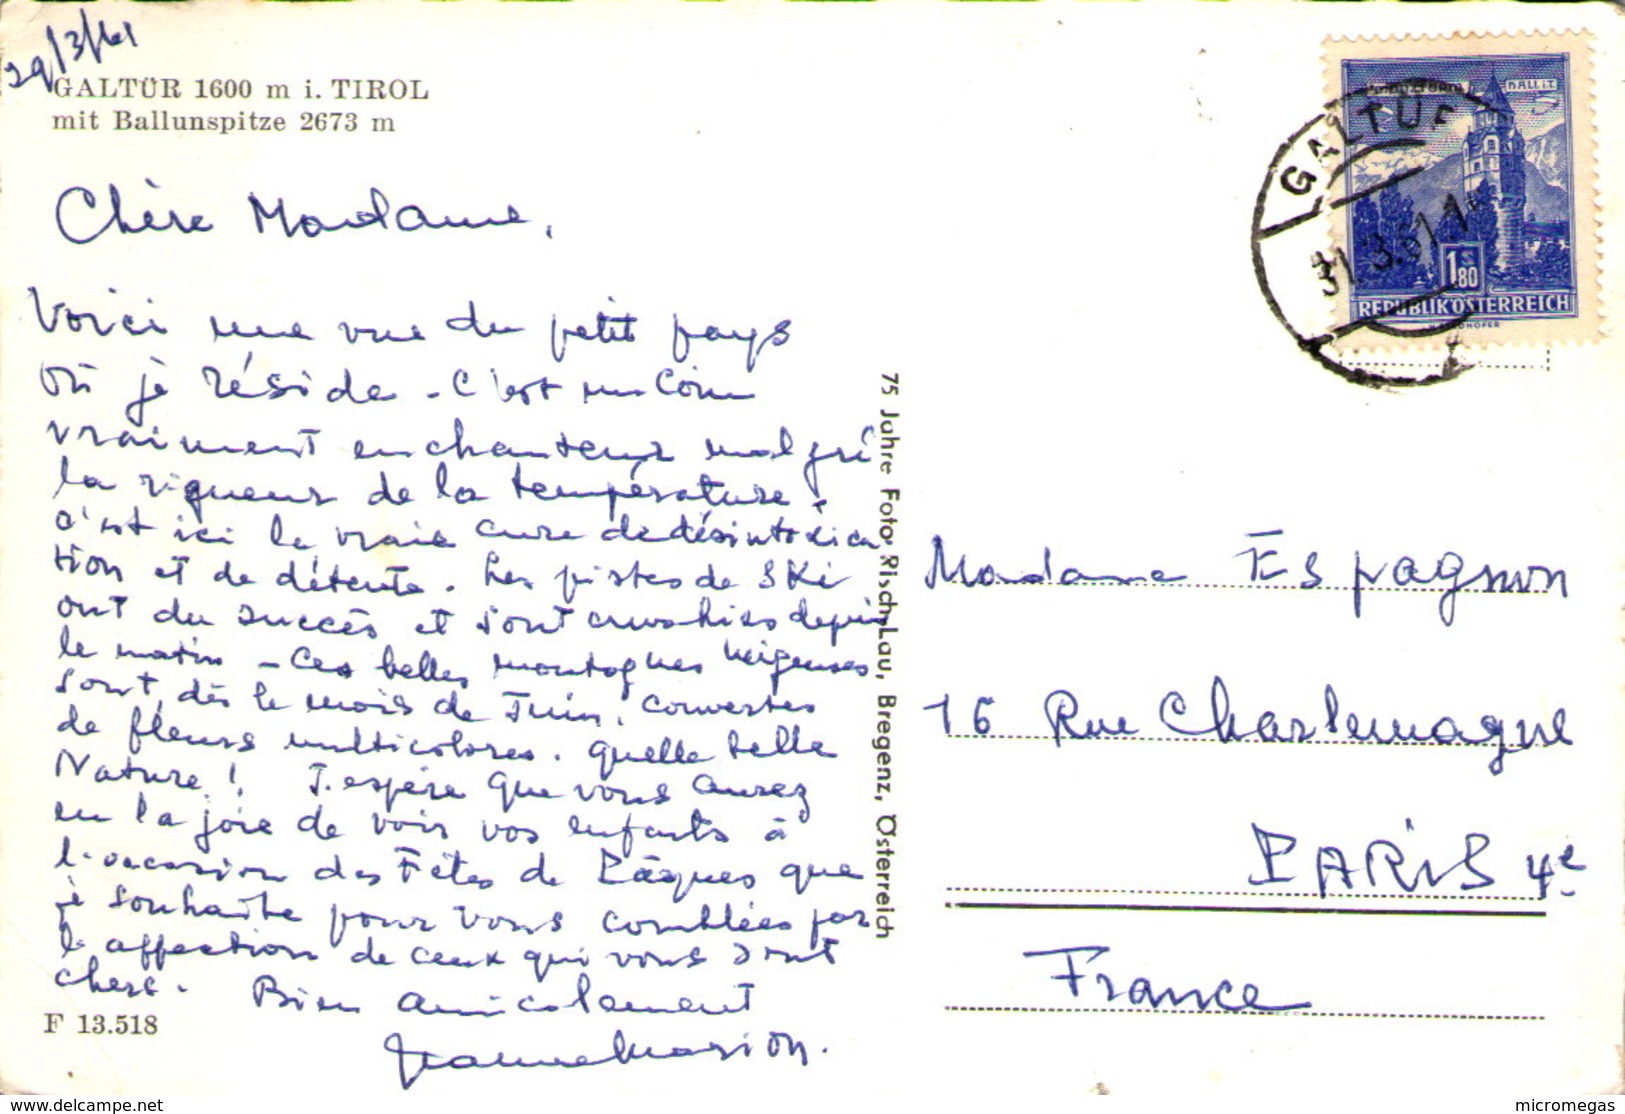 29/3/61
GALTÜR 1600 m i. TIROL
mit Ballunspitze 2673 m
Chère Madame,
Voici une vue du petit pays
où je réside - C'est un coin
vraiment enchanteur malgré
la rigueur de la température.
C'est ici la vraie cure de désintoxica
tion et de détente. Les pistes de Ski
ont du succès et sont envahies depuis
le matin - Ces belles montagnes neigeuses
sont, dès le mois de Juin, couvertes
de fleurs multicolores. Quelle belle
Nature! J'espère que vous aurez
eu la joie de voir vos enfants à
l'occasion des Fêtes de Pâques que
je souhaite pour vous comblées par
l'affection de ceux qui vous sont
chers. Bien amicalement
Jeanne Marion.
F 13.518
75 Jahre Foto Risch-Lau, Bregenz, Österreich
HALL i.T.
1S80
REPUBLIK ÖSTERREICH
GALTÜR
31.3.61.1
Madame Espagnon
16 Rue Charlemagne
PARIS 4e
France
www.delcampe.net
micromegas